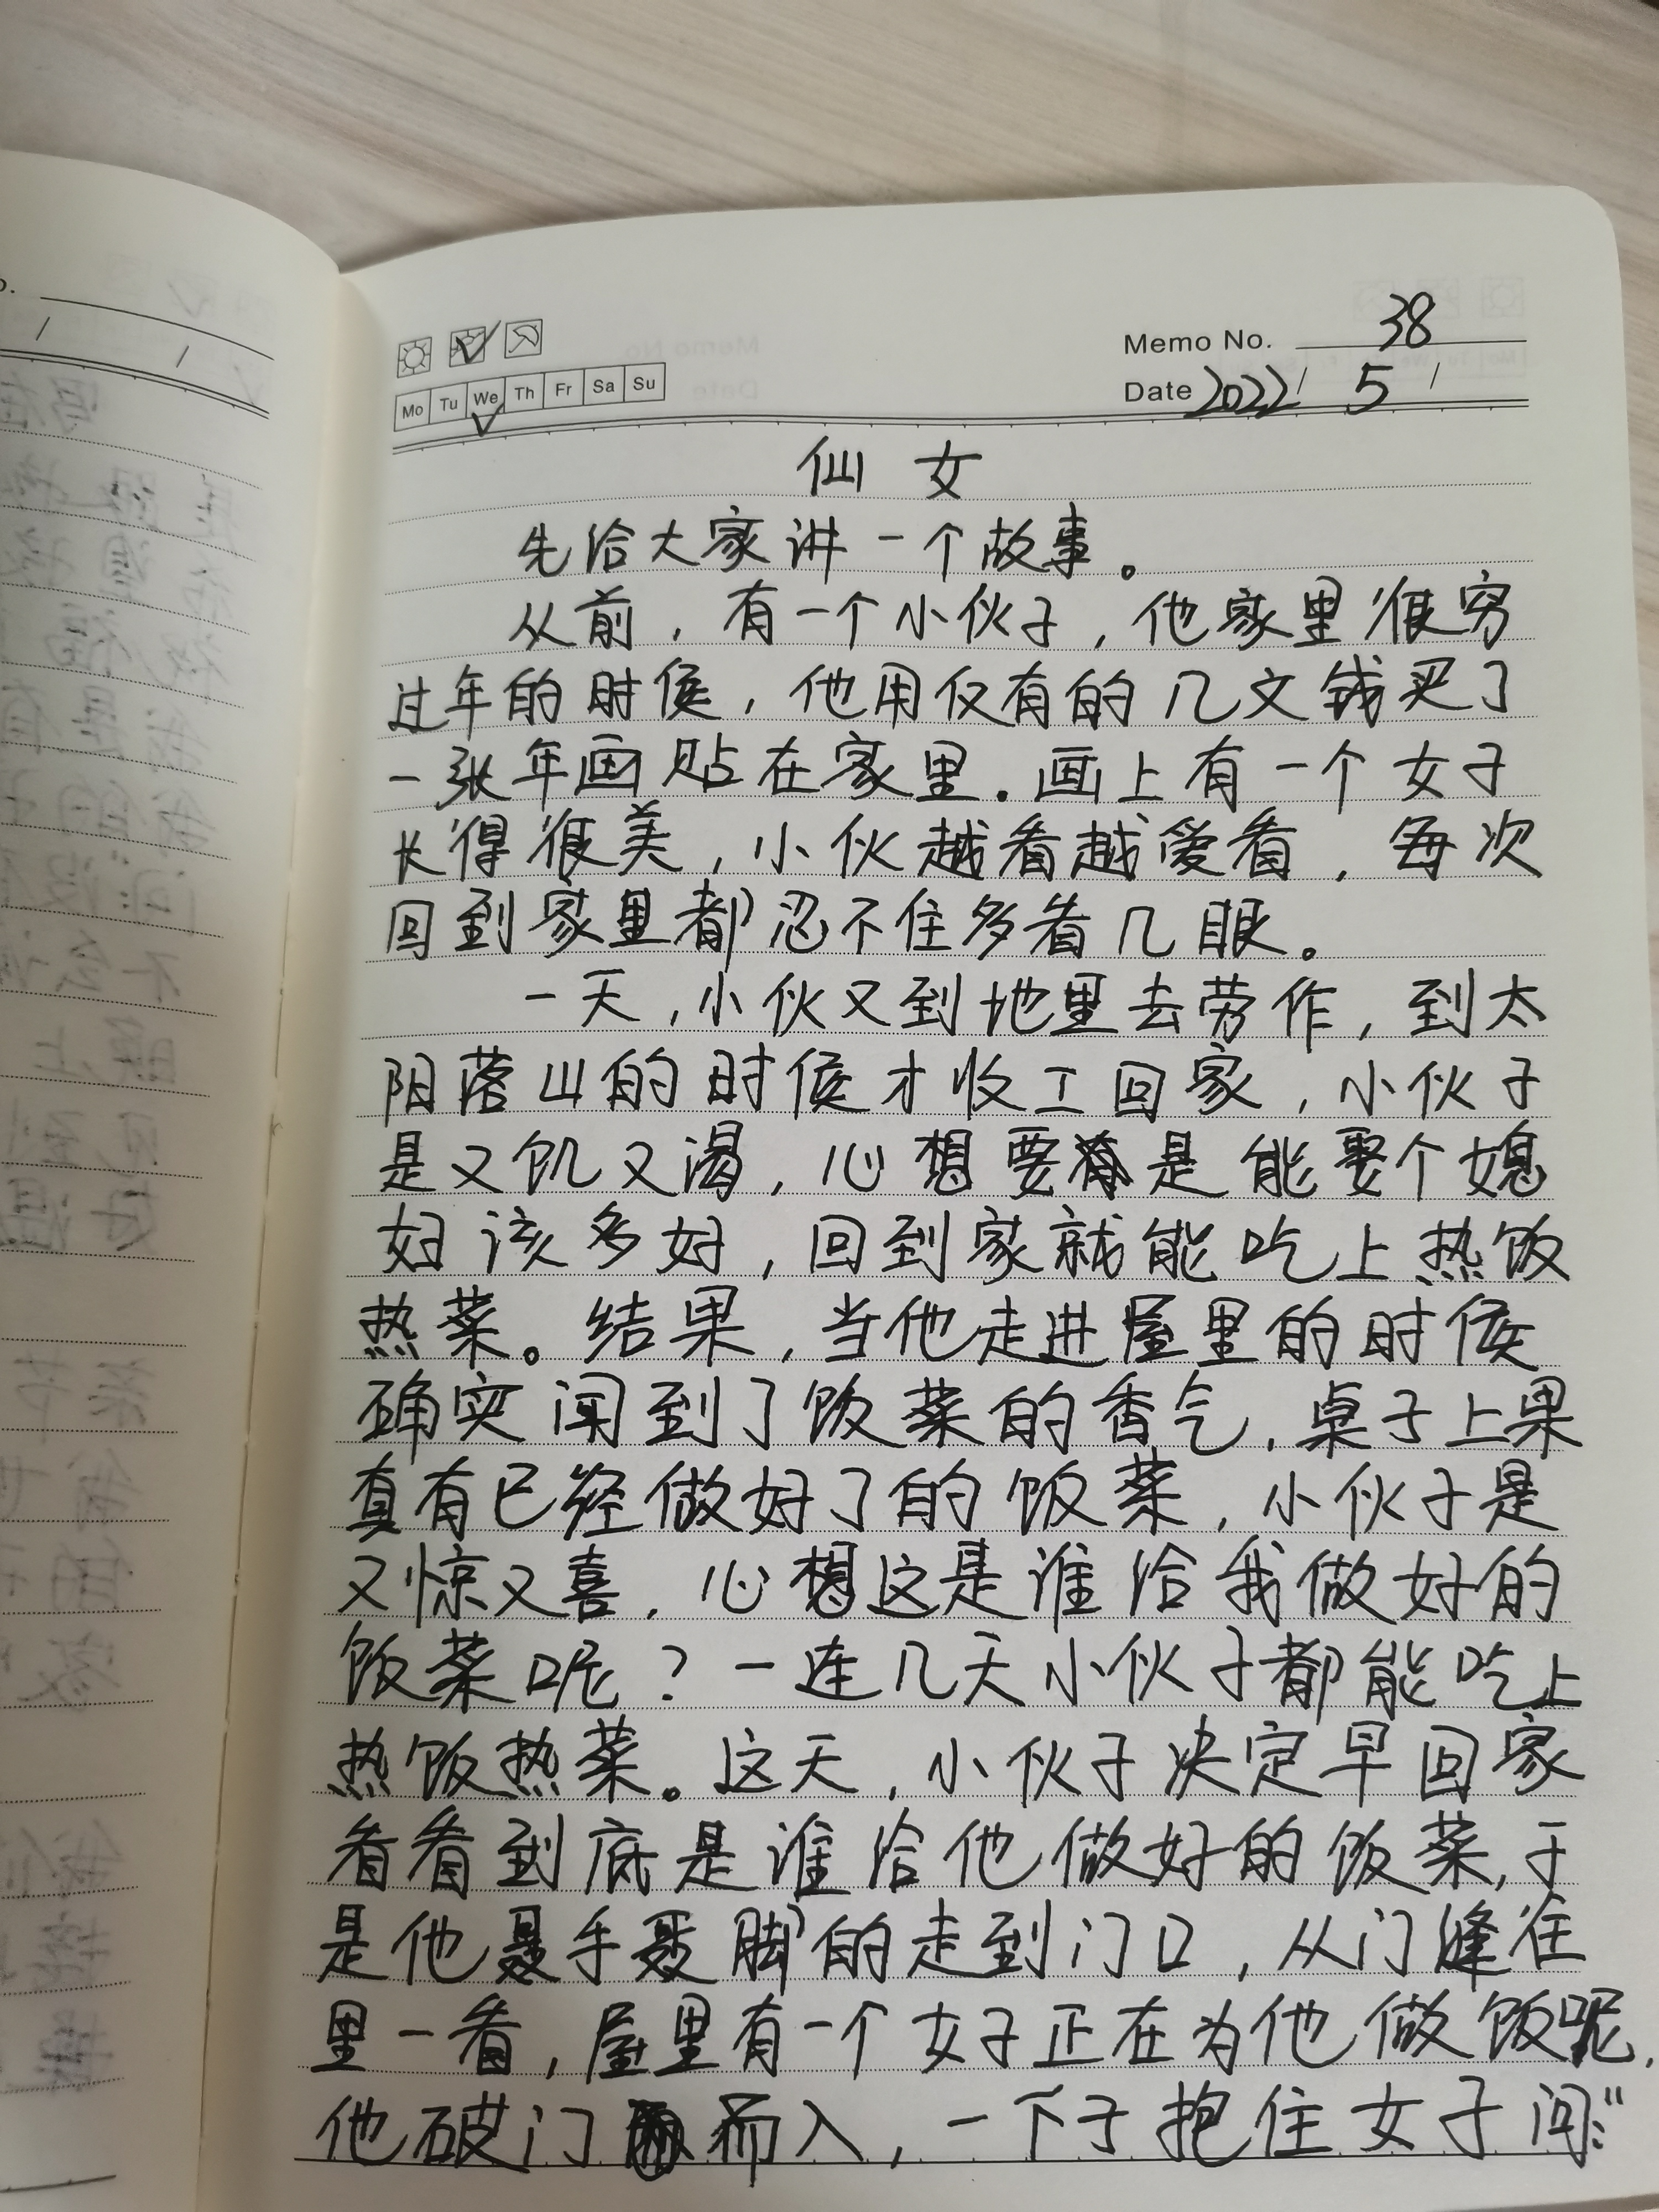 Memo No. 38
Mo Tu We Th Fr Sa Su
Date 2022/ 5 /
仙女
先给大家讲一个故事。
从前，有一个小伙子，他家里很穷
过年的时候，他用仅有的几文钱买了
一张年画贴在家里。画上有一个女子
长得很美，小伙越看越爱看，每次
回到家里都忍不住多看几眼。
一天，小伙又到地里去劳作，到太
阳落山的时候才收工回家，小伙子
是又饥又渴，心想要是能娶个媳
妇该多好，回到家就能吃上热饭
热菜。结果，当他走进屋里的时候
确实闻到了饭菜的香气，桌子上果
真有已经做好了的饭菜，小伙子是
又惊又喜，心想这是谁给我做好的
饭菜呢？一连几天小伙子都能吃上
热饭热菜。这天，小伙子决定早回家
看看到底是谁给他做好的饭菜，于
是他手脚的走到门口，从门缝往
里一看，屋里有一个女子正在为他做饭呢，
他破门而入，一下子抱住女子问：“